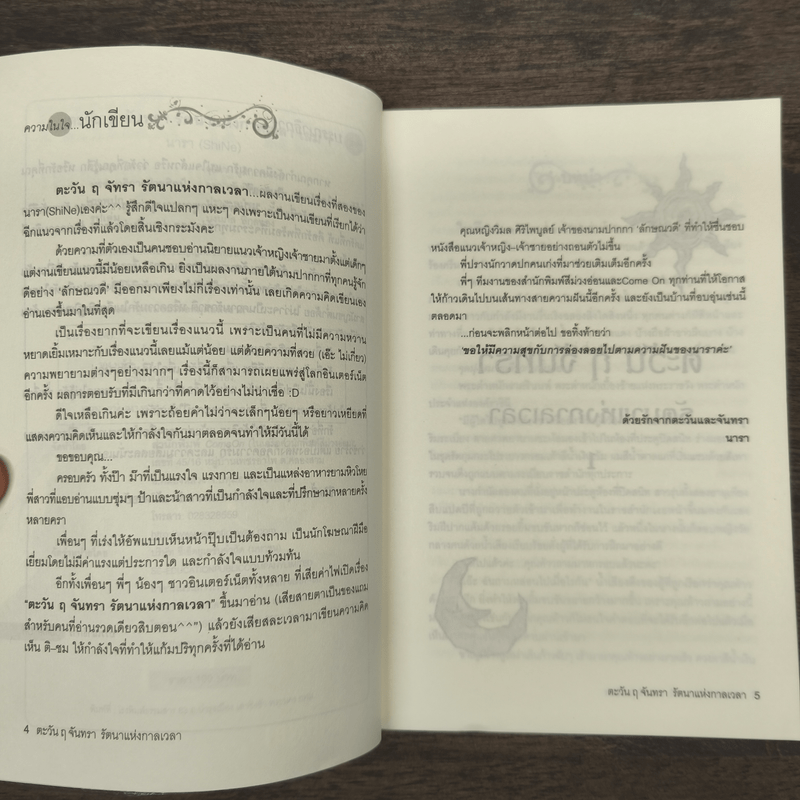 ความในใจ...นักเขียน
ตะวัน ฤ จัทรา รัตนาแห่งกาลเวลา...ผลงานเขียนเรื่องที่สองของ
นารา(ShiNe)เองค่ะ^^ รู้สึกดีใจแปลกๆ แหะๆ คงเพราะเป็นงานเขียนที่เรียกได้ว่า
ฉีกแนวจากเรื่องที่แล้วโดยสิ้นเชิงกระมังคะ
ด้วยความที่ตัวเองเป็นคนชอบอ่านนิยายแนวเจ้าหญิงเจ้าชายมาตั้งแต่เด็กๆ
แต่งานเขียนแนวนี้มีน้อยเหลือเกิน ยิ่งเป็นผลงานภายใต้นามปากกาที่ทุกคนรู้จัก
ดีอย่าง 'ลักษณวดี' มีออกมาเพียงไม่กี่เรื่องเท่านั้น เลยเกิดความคิดเขียนเอง
อ่านเองขึ้นมาในที่สุด
เป็นเรื่องยากที่จะเขียนเรื่องแนวนี้ เพราะเป็นคนที่ไม่มีความหวาน
หยาดเยิ้มเหมาะกับเรื่องแนวนี้เลยแม้แต่น้อย แต่ด้วยความที่สวย (เอ๊ะ ไม่เกี่ยว)
ความพยายามต่างๆอย่างมากๆ เรื่องนี้ก็สามารถเผยแพร่สู่โลกอินเตอร์เน็ต
อีกครั้ง ผลการตอบรับที่มีเกินกว่าที่คาดไว้อย่างไม่น่าเชื่อ :D
ดีใจเหลือเกินค่ะ เพราะถ้อยคำไม่ว่าจะเล็กๆน้อยๆ หรือยาวเหยียดที่
แสดงความคิดเห็นและให้กำลังใจกันมาตลอดจนทำให้มีวันนี้ได้
ขอขอบคุณ...
ครอบครัว ทั้งป๊า ม๊าที่เป็นแรงใจ แรงกาย และเป็นแหล่งอาหารยามหิวโหย
พี่สาวที่แอบอ่านแบบซุ่มๆ ป้าและน้าสาวที่เป็นกำลังใจและที่ปรึกษามาหลายครั้ง
หลายครา
เพื่อนๆ ที่เร่งให้อัพแบบเห็นหน้าปุ๊บเป็นต้องถาม เป็นนักโฆษณาฝีมือ
เยี่ยมโดยไม่มีค่าแรงแต่ประการใด และกำลังใจแบบท้วมท้น
อีกทั้งเพื่อนๆ พี่ๆ น้องๆ ชาวอินเตอร์เน็ตทั้งหลาย ที่เสียค่าไฟเปิดเรื่อง
"ตะวัน ฤ จันทรา รัตนาแห่งกาลเวลา" ขึ้นมาอ่าน (เสียสายตาเป็นของแถม
สำหรับคนที่อ่านรวดเดียวสิบตอน^^") แล้วยังเสียสละเวลามาเขียนความคิด
เห็น ติ-ชม ให้กำลังใจที่ทำให้แก้มปริทุกครั้งที่ได้อ่าน
4 ตะวัน ฤ จันทรา รัตนาแห่งกาลเวลา
คุณหญิงวิมล ศิริไพบูลย์ เจ้าของนามปากกา 'ลักษณวดี' ที่ทำให้ชื่นชอบ
หนังสือแนวเจ้าหญิง-เจ้าชายอย่างถอนตัวไม่ขึ้น
พี่ปรางนักวาดปกคนเก่งที่มาช่วยเติมเต็มอีกครั้ง
พี่ๆ ทีมงานของสำนักพิมพ์สีม่วงอ่อนและCome On ทุกท่านที่ให้โอกาส
ให้ก้าวเดินไปบนเส้นทางสายความฝันนี้อีกครั้ง และยังเป็นบ้านที่อบอุ่นเช่นนี้
ตลอดมา
...ก่อนจะพลิกหน้าต่อไป ขอทิ้งท้ายว่า
'ขอให้มีความสุขกับการล่องลอยไปตามความฝันของนาราค่ะ'
ด้วยรักจากตะวันและจันทรา
นารา
ตะวัน ฤ จันทรา รัตนาแห่งกาลเวลา 5